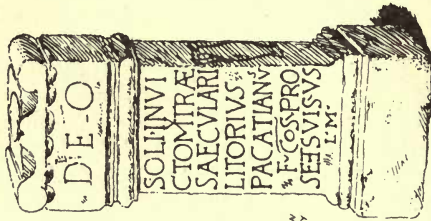 D·E·O
SOLI INVI
CTO MITRÆ
SAECVLARI
LITORIVS
PACATIANV
BF COS PRO
SE ET SVIS V S
L M